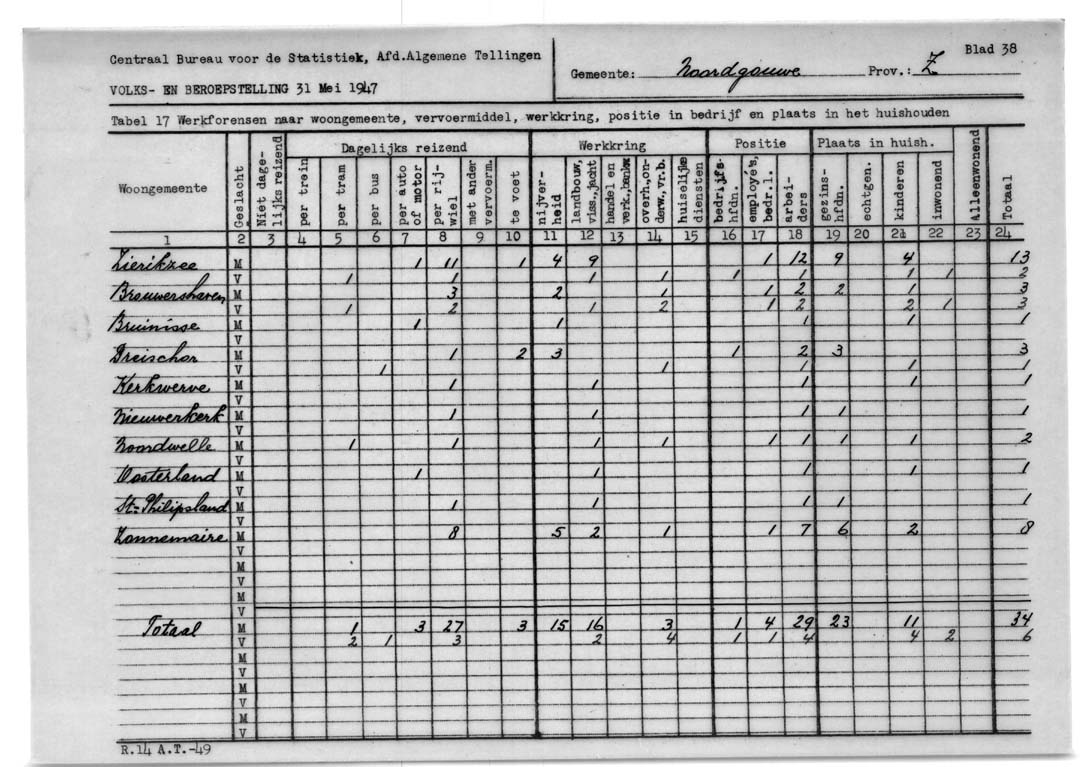 Centraal Bureau voor de Statistiek, Afd.Algemene Tellingen
VOLKS- EN BEROEPSTELLING 31 Mei 1947
Gemeente: Noordgouwe Prov.: Z
Blad 38
Tabel 17 Werkforensen naar woongemeente, vervoermiddel, werkkring, positie in bedrijf en plaats in het huishouden
Woongemeente Geslacht Niet dage- lijks reizend Dagelijks reizend Werkkring Positie Plaats in huish. Alleenwonend Totaal
per trein per tram per bus per auto of motor per rij- wiel met ander vervoerm. te voet nijver- heid landbouw, viss.,jacht handel en verk.,bankw. overh.,on- derw.,vr.b. huiselijke diensten bedrijfs- hfdn. employe's, bedr.l. arbei- ders gezins- hfdn. echtgen. kinderen inwonend
1 2 3 4 5 6 7 8 9 10 11 12 13 14 15 16 17 18 19 20 21 22 23 24
Zierikzee M 1 11 1 4 9 1 12 9 4 13
V 1 1 1 1 1 1 1 1 2
Brouwershaven M 3 2 1 1 2 2 1 3
V 1 2 1 2 1 2 2 1 3
Bruinisse M 1 1 1 1 1
V
Dreischor M 1 2 3 1 2 3 3
V 1 1 1 1 1
Kerkwerve M 1 1 1 1 1
V
Nieuwerkerk M 1 1 1 1 1
V
Noordwelle M 1 1 1 1 1 1 1 1 2
V
Oosterland M 1 1 1 1 1
V
St= Philipsland M 1 1 1 1 1
V
Zonnemaire M 8 5 2 1 1 7 6 2 8
V
M
V
M
V
Totaal M 1 3 27 3 15 16 3 1 4 29 23 11 34
V 2 1 3 2 4 1 1 4 4 2 6
M
V
M
V
M
V
R.14 A.T.-49